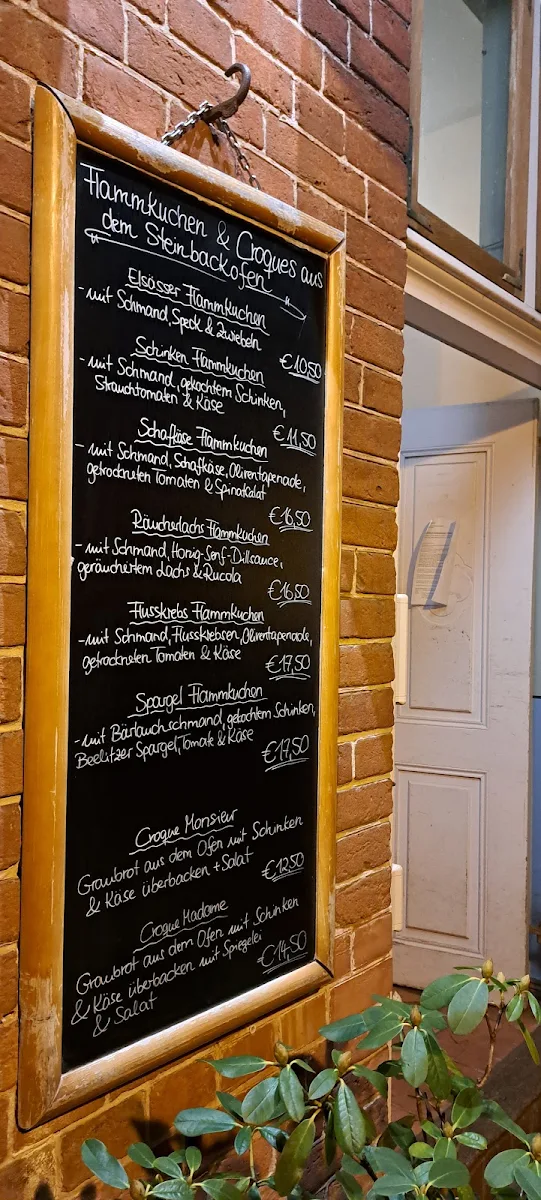 Flammkuchen & Croques aus
dem Steinbackofen
Elsässer Flammkuchen
- mit Schmand, Speck & Zwiebeln
€10,50
Schinken Flammkuchen
- mit Schmand, gekochtem Schinken,
Strauchtomaten & Käse
€11,50
Schafkäse Flammkuchen
- mit Schmand, Schafkäse, Oliventapenade,
getrockneten Tomaten & Spinatsalat
€16,50
Räucherlachs Flammkuchen
- mit Schmand, Honig-Senf-Dillsauce,
geräuchertem Lachs & Rucola
€16,50
Flusskrebs Flammkuchen
- mit Schmand, Flusskrebsen, Oliventapenade,
getrockneten Tomaten & Käse
€17,50
Spargel Flammkuchen
- mit Bärlauchschmand, gekochtem Schinken,
Beelitzer Spargel, Tomate & Käse
€17,50
Croque Monsieur
Graubrot aus dem Ofen mit Schinken
& Käse überbacken + Salat
€12,50
Croque Madame
Graubrot aus dem Ofen mit Schinken
& Käse überbacken mit Spiegelei
& Salat
€14,50